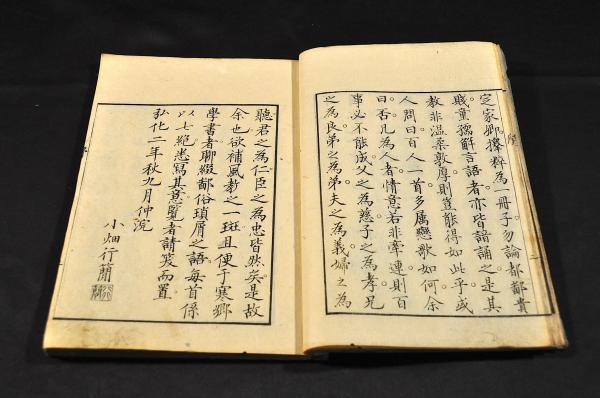 定家卿撰粹為一冊子勿論都鄙貴
賤童孺解言語者亦皆諳誦之是其
教非温柔敦厚則豈能得如此乎或
人問曰百人一首多属戀歌如何余
曰否凡為人者情意若非牽連則百
事必不能成父之為慈子之為孝兄
之為良弟之為弟夫之為義婦之為
聽君之為仁臣之為忠皆然矣是故
余也欲補風教之一斑且便于寒鄉
學書者聊綴鄙俗瑣屑之語每首係
以七絕悉寫其意覽者請笑而置
弘化二年秋九月仲浣
小畑行蕳